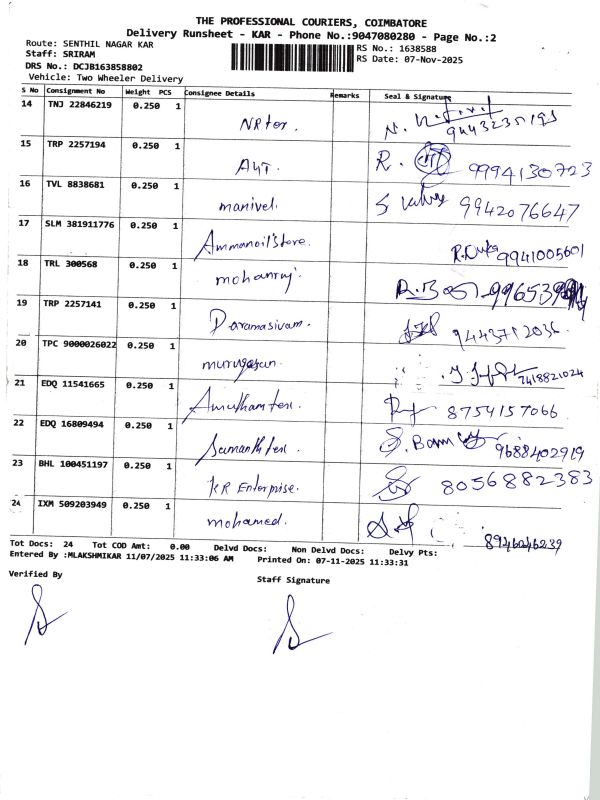 THE PROFESSIONAL COURIERS, COIMBATORE
Delivery Runsheet - KAR - Phone No.:9047080280 - Page No.:2
Route: SENTHIL NAGAR KAR
Staff: SRIRAM
DRS No.: DCJB163858802
Vehicle: Two Wheeler Delivery
RS No.: 1638588
RS Date: 07-Nov-2025
S No Consignment No Weight PCS Consignee Details Remarks Seal & Signature
14 TNJ 22846219 0.250 1
9443235193
15 TRP 2257194 0.250 1 R. 9994130723
16 TVL 8838681 0.250 1 manivel. S 9942076647
17 SLM 381911776 0.250 1 Ammanoil Store. 9941005601
18 TRL 300568 0.250 1 mohanraj.
19 TRP 2257141 0.250 1 Daramasivam. 9443712036
20 TPC 9000026022 0.250 1 murugesan. 7418821024
21 EDQ 11541665 0.250 1 8754157066
22 EDQ 16809494 0.250 1 9688402919
23 BHL 100451197 0.250 1 KR Enterprise. 8056882383
24 IXM 509203949 0.250 1 mohamed. 8946246239
Tot Docs: 24 Tot COD Amt: 0.00 Delvd Docs: Non Delvd Docs: Delvy Pts:
Entered By :MLAKSHMIKAR 11/07/2025 11:33:06 AM Printed On: 07-11-2025 11:33:31
Verified By
Staff Signature